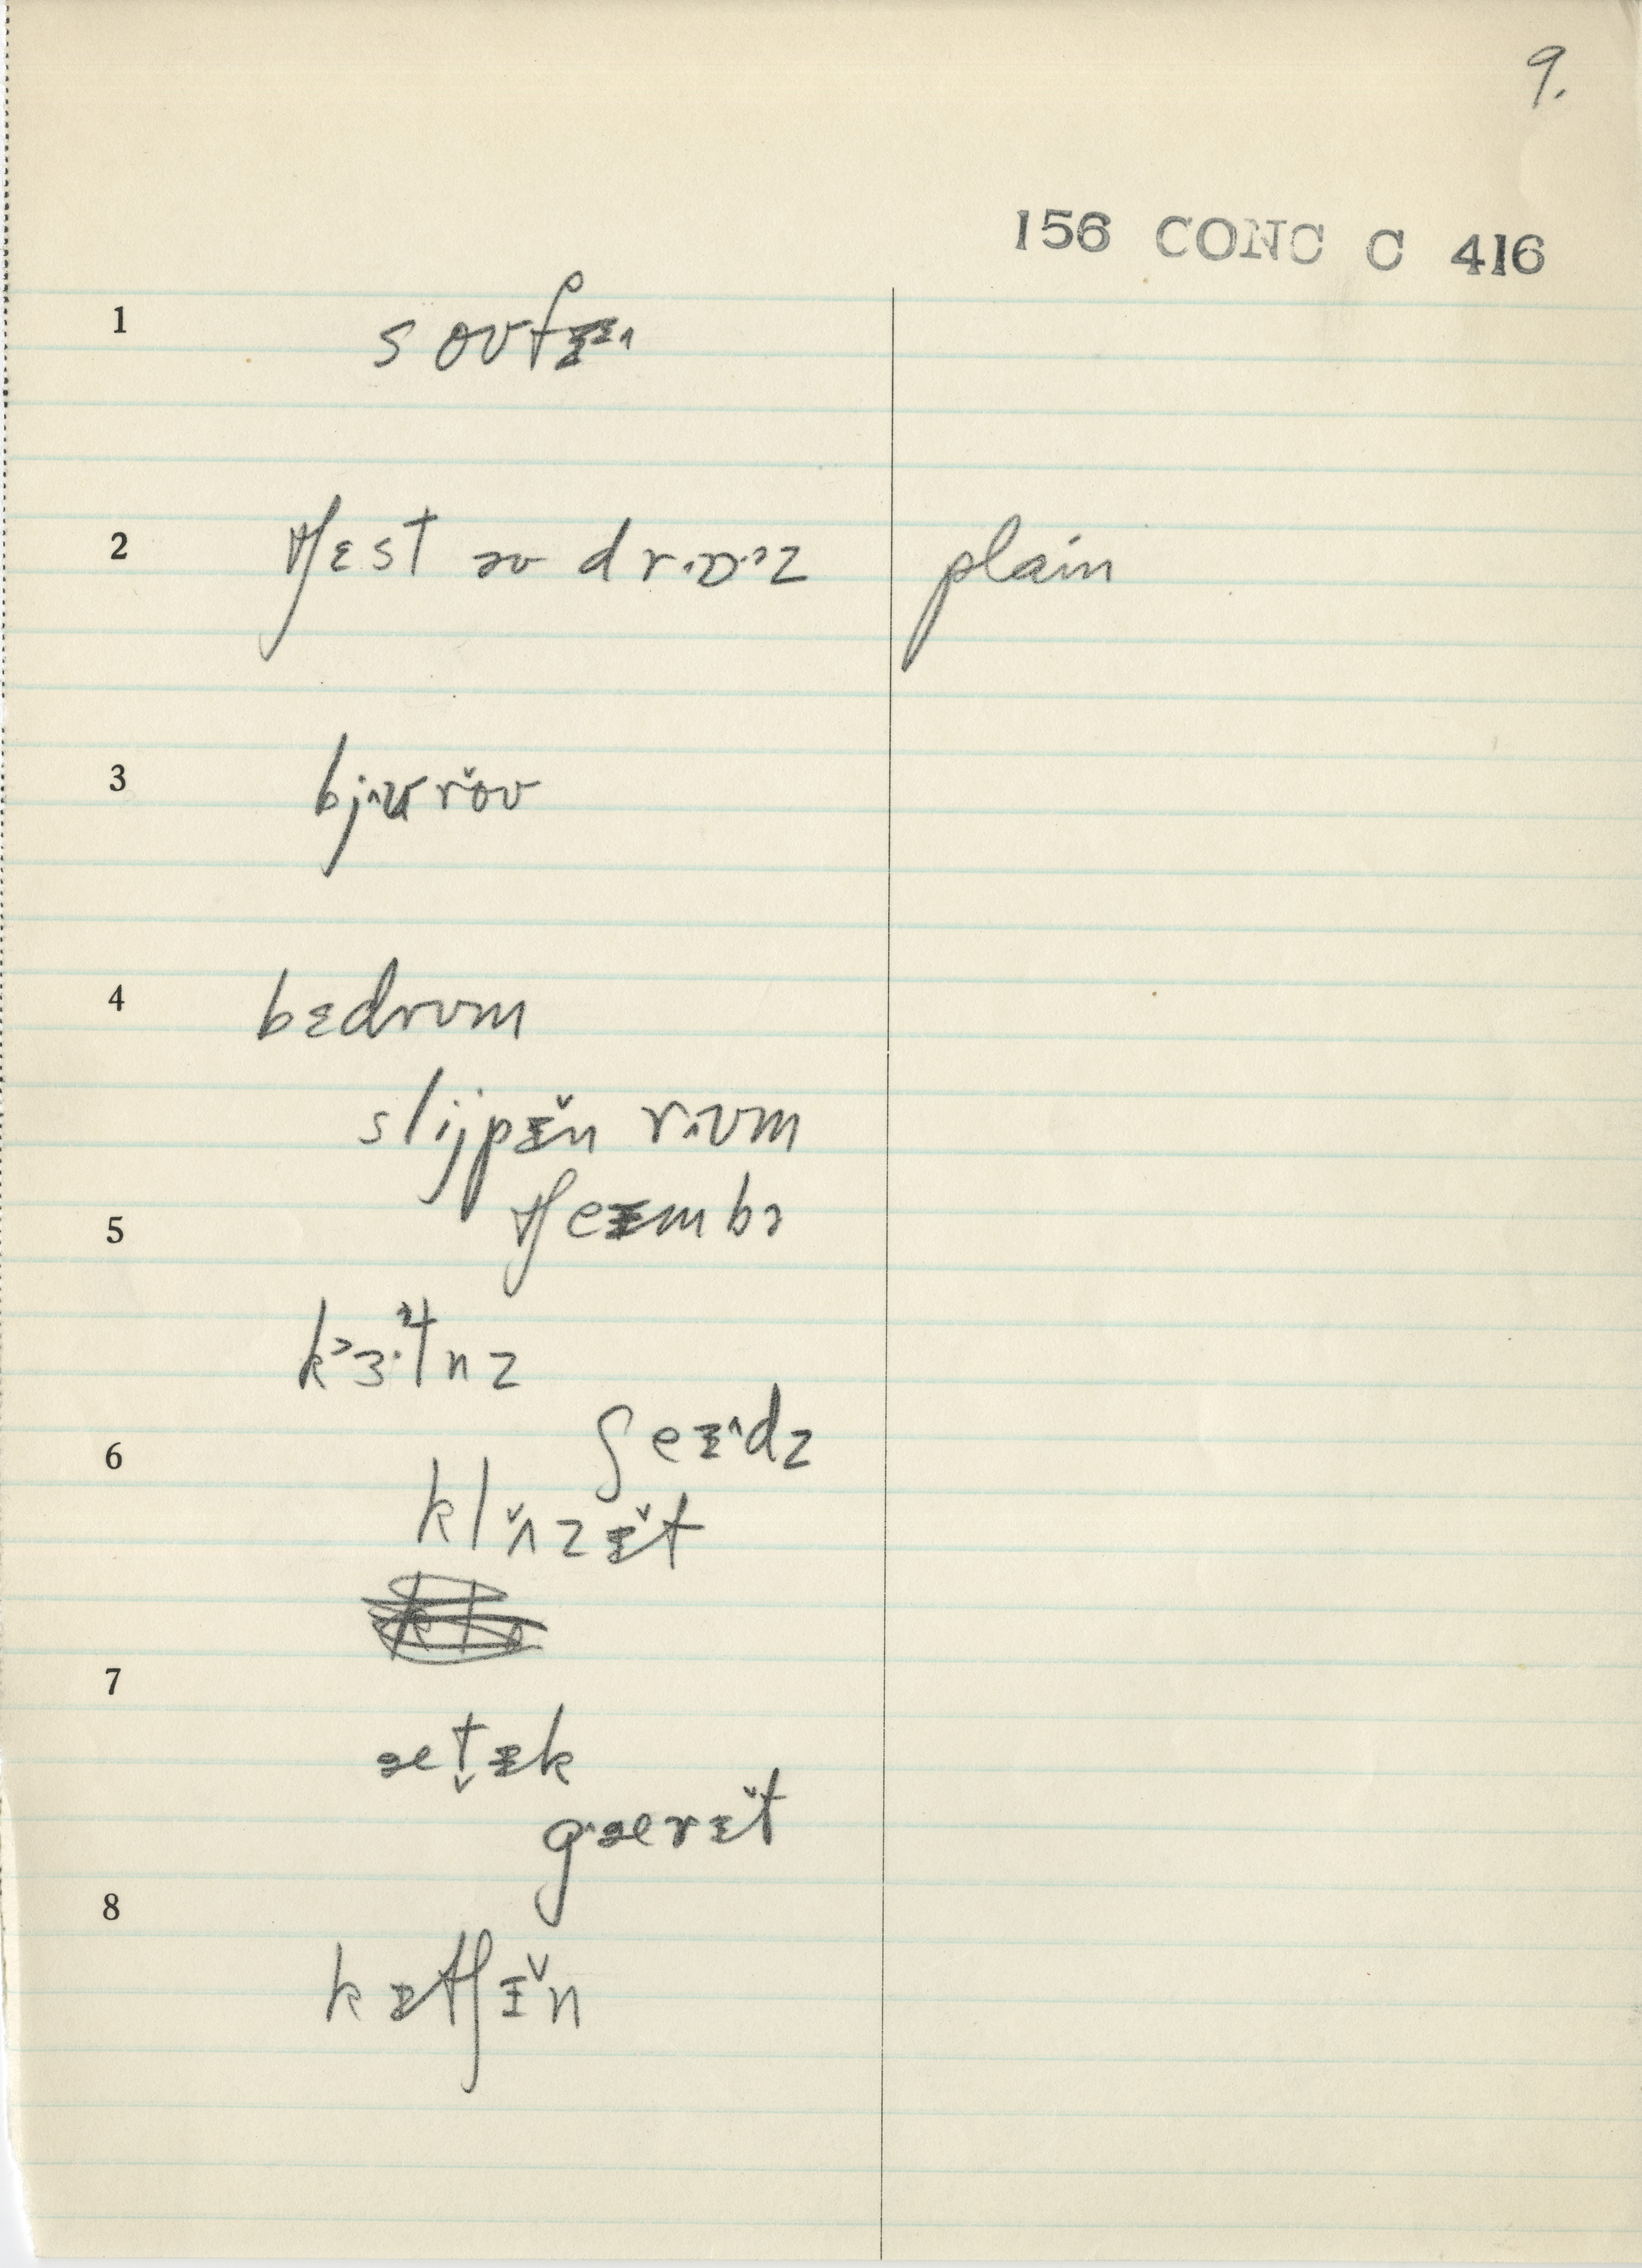 9.
156 CONC C 416
1 soʊfə
2 tʃɛst əv drɔ·ɚz plain
3 bjʊrə̆ʊ
4 bɛdrʊm
slijpɪ̆n rʊm
5 tʃeɪmbɚ
kɜ·tnz
6 ʃeɪdz
klɒ̆zɪ̆t
7
ætɪk
gærɪ̆t
8 kɪtʃɪ̆n